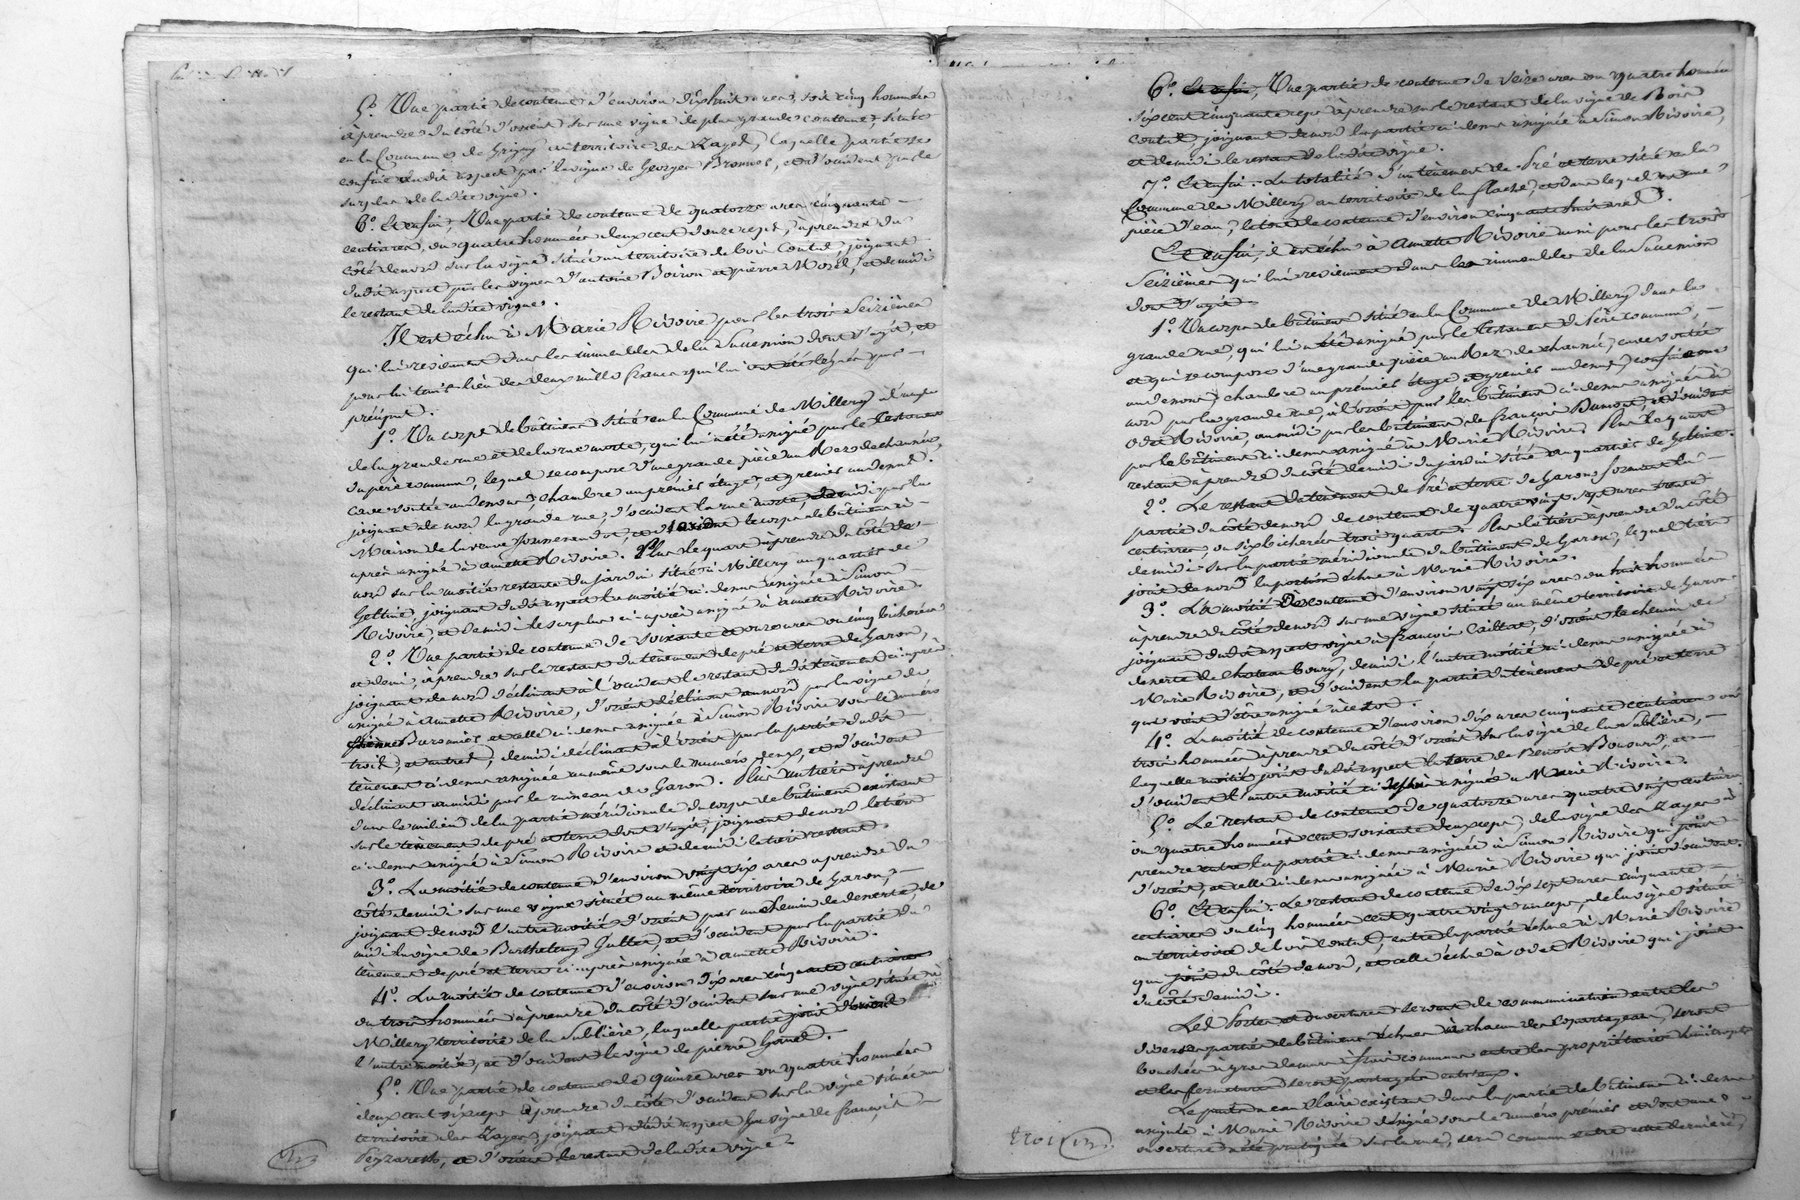 5° Une partie de contenue d'environ dixhuit ares, soit cinq hommées
à prendre du côté d'orient sur une vigne de plus grande contenue, située
en la Commune de Grigny au territoire des Rayes, laquelle partie se
confine dudit aspect par la vigne de Georges Bromes, et d'occident par le
surplus de ladite vigne.
6° Et enfin, Une partie de contenue de quatorze ares cinquante
centiares, ou quatre hommées deux cent douze ceps, à prendre du
côté de nord sur la vigne située au territoire de bois Contal, joignant
dudit aspect par les vignes d'antoine Boiron et pierre Morel, et de midi
le restant de ladite vigne.
Il est échu à Marie Rivoire, pour les trois Seizièmes
qui lui reviennent dans les immeubles de la Succession dont s'agit, et
pour lui tenir lieu des deux mille francs qui lui ont été légués par
préciput.
1° Un corps de bâtiment situé en la Commune de Millery à l'angle
de la grande rue et de la rue morte, qui lui a été assigné par le testament
du père commun, lequel se compose d'une grande pièce au Rez de chaussée,
cave voutée au dessous, chambre au prémier étage, et grenier au dessus,
joignant de nord la grande rue, d'occident la rue morte, de midi par la
Maison de la veuve Jonnerandot, et d'orient le corps de bâtiment ci
après assigné à amette Rivoire. Plus le quart à prendre du côté de
nord sur la moitié restante du jardin situé à Millery au quartier de
Gettine, joignant dudit aspect la moitié ci dessus assignée à Simon
Rivoire, et de midi le surplus ci-après assigné à amette Rivoire.
2° Une partie de contenue de soixante et onze ares ou cinq bicherées
et demi, à prendre sur le restant du tènement de pré et terre de Garon,
joignant de nord déclinant à l'occident le restant dudit tènement ci après
assigné à amette Rivoire, d'orient déclinant au nord par la vigne de
Baronnier et celle ci dessus assignée à Simon Rivoire sous le numéro
trois, et autres, de midi déclinant à l'orient par la partie dudit
tènement ci dessus assignée au même sous le numéro deux, et d'occident
déclinant au midi par le ruisseau de Garon. Plus un tiers à prendre
dans le milieu de la partie méridionale du corps de bâtiment existant
sur le tènement de pré et terre dont s'agit, joignant de nord le tiers
ci dessus assigné à Simon Rivoire et de midi le tiers restant.
3° La moitié de contenue d'environ vingt six ares à prendre du
côté de midi sur une vigne située au même territoire de Garon,
joignant de nord l'autre moitié, d'orient par un chemin de deserte, de
midi la vigne de Barthelemy Jullien, et d'occident par la partie du
tènement de pré et terre ci-après assignée à amette Rivoire.
4° La moitié de contenue d'environ dix ares cinquante centiares
ou trois hommées à prendre du côté d'occident sur une vigne située à
Millery territoire de la Sublière, laquelle partie joint d'orient
l'autre moitié, et d'occident la vigne de pierre Gonel.
5° Une partie de contenue de quinze ares ou quatre hommées
deux cent dix ceps à prendre du côté d'occident sur la vigne située au
territoire des Rayes, joignant dudit aspect la vigne de françois
et d'orient le restant de ladite vigne.
6° Et enfin, Une partie de contenue de seize ares ou quatre hommées
six cent cinquante ceps à prendre sur le restant de la vigne de Bois
contal, joignant de nord la partie ci dessus assignée à Simon Rivoire,
et de midi le restant de ladite vigne.
7° Et enfin. La totalité d'un tènement de Pré et terre situé en la
Commune de Millery au territoire de la flache, et dans lequel est une
pièce d'eau, le tout de contenue d'environ cinquante huit ares.
Et enfin, il est échu à Amette Rivoire aussi pour les trois
Seizièmes qui lui reviennent dans les immeubles de la Succession
dont s'agit
1° Un corps de bâtiment situé en la Commune de Millery dans la
grande rue, qui lui a été assigné par le testament du Père commun,
et qui se compose d'une grande pièce au Rez de chaussée, cave voutée
au dessous, chambre au prémier étage et grenier au dessus, confiné au
nord par la grande rue, à l'orient par le bâtiment ci dessus assigné à
Odet Rivoire, au midi par le bâtiment de françois Dumont et d'occident
par le bâtiment ci dessus assigné à Marie Rivoire. Plus le quart
restant à prendre du côté de midi du jardin situé au quartier de Gettine.
2° Le restant du tènement de Pré et terre de Garon formant la
partie du côté de nord de contenue de quatre vingt sept ares trente
centiares, ou six bicherées trois quarts. Plus le tiers à prendre du côté
de midi sur la partie méridionale du bâtiment de Garon, lequel tiers
joint de nord la portion échue à Marie Rivoire.
3° La moitié de contenue d'environ vingt six ares ou huit hommées
à prendre du côté de nord sur une vigne située au même territoire de Garon
joignant dudit aspect vigne à françois Caillat, d'orient le chemin de
deserte de Chateau bourg, de midi l'autre moitié ci dessus assignée à
Marie Rivoire, et d'occident la partie du tènement de pré et terre
qui vient d'être assignée à ce lot.
4° La moitié de contenue d'environ dix ares cinquante centiares ou
trois hommées à prendre du côté d'orient sur la vigne de la Sublière,
laquelle moitié joint dudit aspect la terre de Benoit Bouvard, et
d'occident l'autre moitié ci dessus assignée à Marie Rivoire.
5° Le restant de contenue de quatorze ares quatre vingt centiares
ou quatre hommées cent soixante deux ceps, de la vigne des Rayes à
prendre entre la partie ci dessus assignée à Simon Rivoire qui joint
d'orient, et celle ci dessus assignée à Marie Rivoire qui joint d'occident.
6° Et enfin. Le restant de contenue de dix sept ares cinquante
centiares ou cinq hommées cent quatre vingt un ceps, de la vigne située
au territoire de bois contal, entre la partie échue à Marie Rivoire
qui joint du côté de nord, et celle échue à Odet Rivoire qui joint
du côté de midi.
Les Portes et ouvertures servant de communication entre les
diverses parties de bâtiment échues à chacun des copartageans, seront
bouchées à gros de mur à frais communs entre les propriétaires limitrophes
et les fermetures seront partagées entr'eux.
La porte en eau claire existant dans la partie de bâtiment ci dessus
assignée à Marie Rivoire désignée sous le numéro prémier et dont une
ouverture a été pratiquée sur la rue, sera commun entre cette dernière,